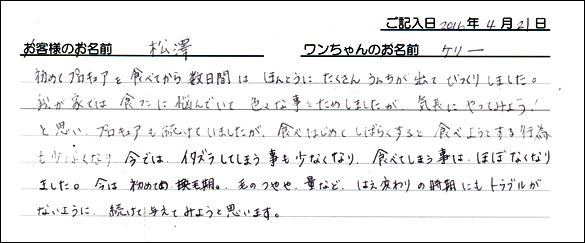 ご記入日 2016年 4月 21日
お客様のお名前 松澤 ワンちゃんのお名前 ケリー
初めてプロキュアを食べてから数日間は ほんとうに たくさん うんちが出て びっくりしました。
我が家では 食フンに悩んでいて 色々な事をためしましたが、気長に やってみよう!
と思い、プロキュアも続けていましたが、食べはじめて しばらくすると 食べようとする行為
も少なくなり 今では、イタズラしてしまう事も少なくなり、食べてしまう事は、ほぼなくなり
ました。今は 初めての 換毛期。毛のつやや、量など、はえ変わりの時期にも トラブルが
ないように、続けて与えてみようと思います。